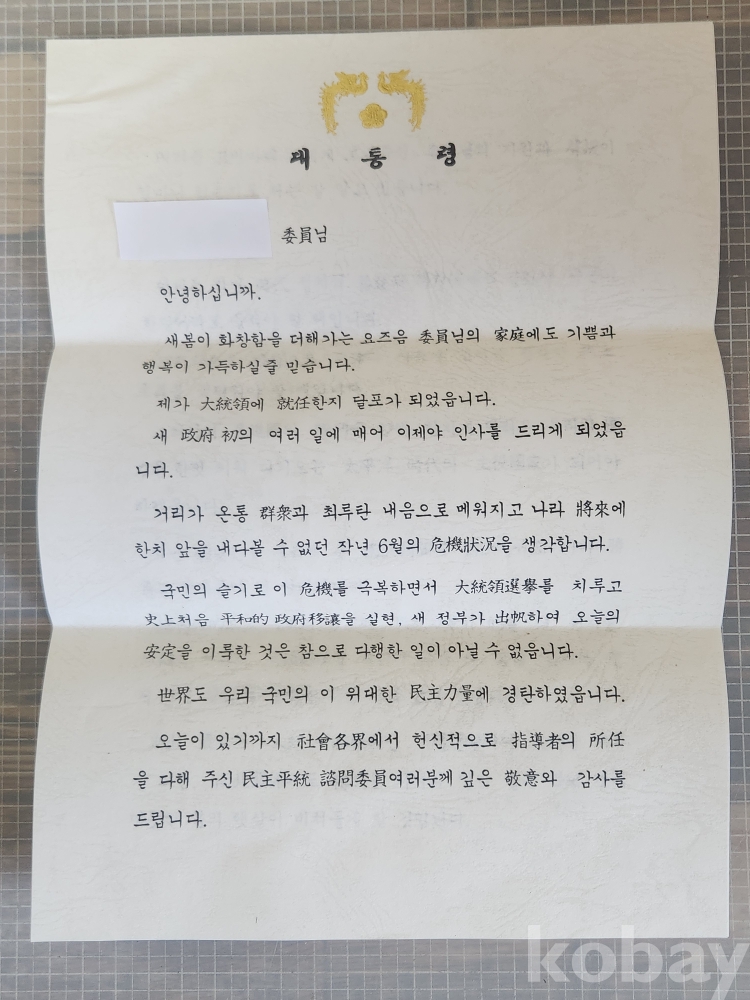 대 통 령
委員님
안녕하십니까.
새봄이 화창함을 더해가는 요즈음 委員님의 家庭에도 기쁨과
행복이 가득하실줄 믿습니다.
제가 大統領에 就任한지 달포가 되었읍니다.
새 政府 初의 여러 일에 매어 이제야 인사를 드리게 되었읍
니다.
거리가 온통 群衆과 최루탄 내음으로 메워지고 나라 將來에
한치 앞을 내다볼 수 없던 작년 6월의 危機狀況을 생각합니다.
국민의 슬기로 이 危機를 극복하면서 大統領選擧를 치루고
史上처음 平和的 政府移讓을 실현, 새 정부가 出帆하여 오늘의
安定을 이룩한 것은 참으로 다행한 일이 아닐 수 없읍니다.
世界도 우리 국민의 이 위대한 民主力量에 경탄하였읍니다.
오늘이 있기까지 社會各界에서 헌신적으로 指導者의 所任
을 다해 주신 民主平統 諮問委員여러분께 깊은 敬意와 감사를
드립니다.
kobay